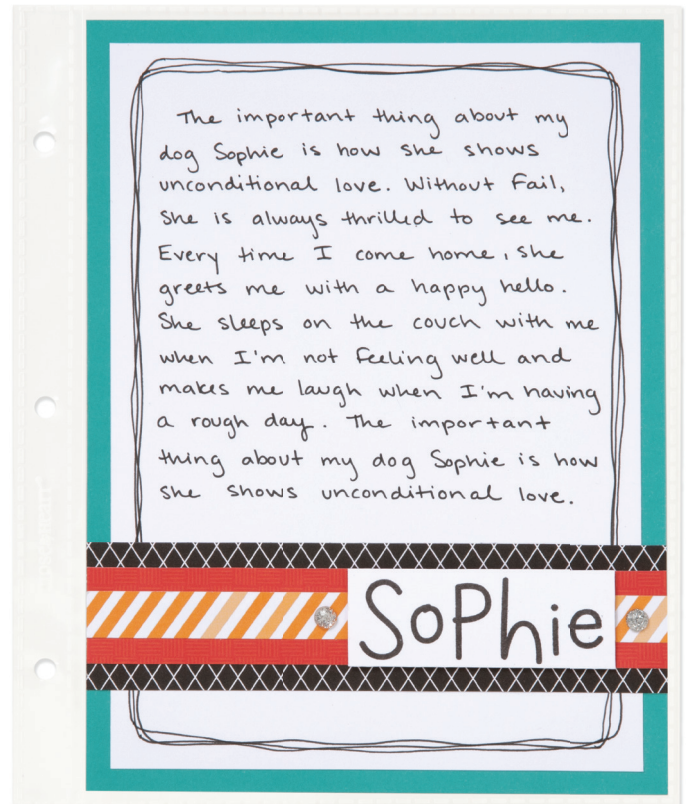 The important thing about my
dog Sophie is how she shows
unconditional love. Without Fail,
She is always thrilled to see me.
Every time I come home, she
greets me with a happy hello.
She sleeps on the couch with me
when I'm not feeling well and
makes me laugh when I'm having
a rough day. The important
thing about my dog Sophie is how
she shows unconditional love.
SoPhie